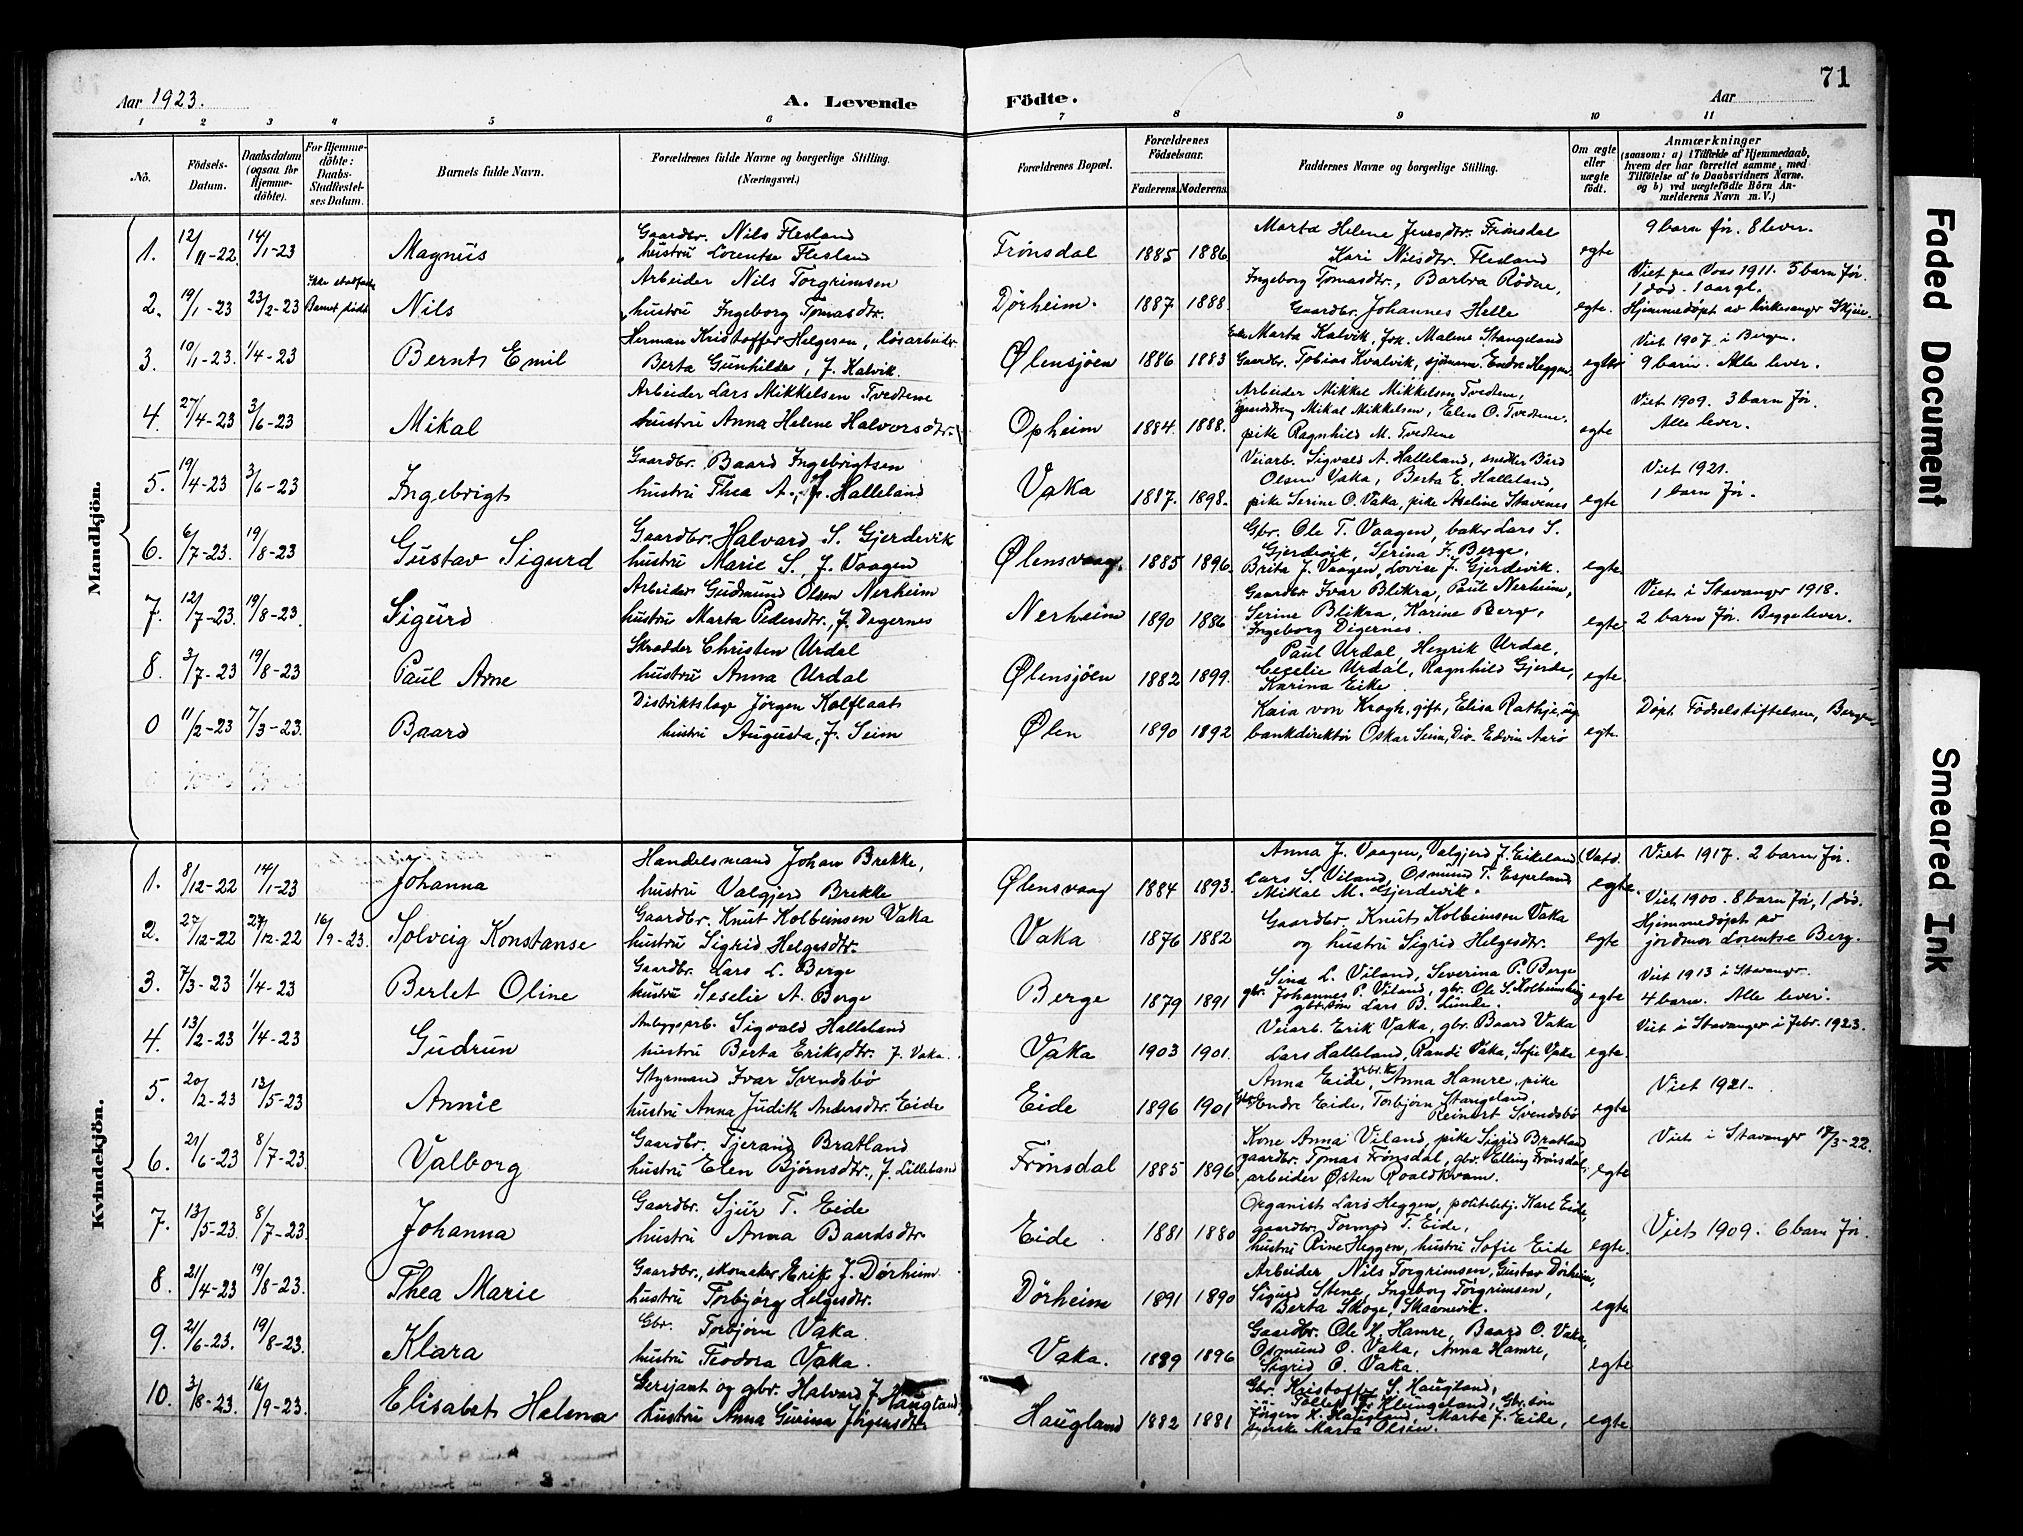 71
Aar 1923.
A. Levende Födte.
Aar
1 2 3 4 5 6 7 8 9 10 11
No.
Födsels-Datum.
Daabsdatum (ogsaa for Hjemmedöbte).
For Hjemmedöbte: Daabs-Stadfæstelses Datum.
Barnets fulde Navn.
Forældrenes fulde Navne og borgerlige Stilling.
(Næringsvei.)
Forældrenes Bopæl.
Forældrenes Födselsaar.
Faderens. Moderens.
Faddernes Navne og borgerlige Stilling.
Om ægte eller uægte födt.
Anmærkninger
(saasom: a) i Tilfælde af Hjemmedaab, hvem der har forrettet samme, med Tilföielse af to Daabsvidners Navne, og b) ved uægtefödte Börn Anmelderens Navn m. V.)
Mandkjön.
1. 12/11-22 14/1-23 Magnus
Gaardbr. Nils Flesland
hustru Lorentse Flesland
Frønsdal 1885 1886
Marta Helene Jensdtr. Frønsdal
Kari Nilsdtr. Flesland
egte
9 barn før. 8 lever.
2. 19/1-23 23/2-23 Nils
Arbeider Nils Torgrimsen
hustru Ingeborg Tomasdtr.
Dørheim. 1887 1888
Ingeborg Tomasdtr., Barbra Rødne,
Gaardbr. Johannes Helle
egte.
Viet paa Voss 1911. 5 barn før.
1 død. 1 aar gl.
Hjemmedøpt av kirkesanger Skjeie.
3. 10/1-23. 1/4-23 Bernt Emil
Herman Kristoffer Helgesen, løsarbeider
Berta Gunhilde, f. Kalvik.
Ølensjøen 1886 1883
Enke Marta Kalvik, frk. Malene Stangeland
Gaardbr. Tobias Kvalvik, sjømann Endre Heggen
egte
Viet 1907 i Bergen.
9 barn. Alle lever.
4. 27/4-23 3/6-23 Mikal
Arbeider Lars Mikkelsen Tvedtene
hustru Anna Helene Halvorsdtr.
Opheim 1884 1888.
Arbeider Mikkel Mikkelsen Tvedtene,
Mikal Mikkelsen, Elen O. Tvedtene.
pike Ragnhild M. Tvedtene
egte
Viet 1909. 3 barn før.
Alle lever.
5. 19/4-23 3/6-23 Ingebrigt
Gaardbr. Baard Ingebrigtsen
hustru Thea A., f. Halleland
Vaka 1887. 1898.
Veiarb. Sigvald A. Halleland, smeder Bård
Olsen Vaka, Berta E. Halleland,
pike Serine O. Vaka, pike Aseline Stavenes
egte
Viet 1921.
1 barn før.
6. 6/7-23. 19/8-23 Gustav Sigurd
Gaardbr. Halvard S. Gjerdevik
hustru Marie S. f. Vaagen
Ølensvaag. 1885 1896
Gbr. Ole T. Vaagen, baker Lars S.
Gjerdevik, Serina F. Berge,
Brita J. Vaagen, Lovise J. Gjerdevik.
egte
7. 12/7-23. 19/8-23 Sigurd
Arbeider Gudmund Olsen Nerheim
hustru Marta Pedersdtr., f. Degernes
Nerheim 1890 1886
Gaardbr. Ivar Blikra, Paul Nerheim,
Serine Blikra, Karine Berge,
Ingeborg Digernes.
egte
Viet i Stavanger 1918.
2 barn før. Begge lever.
8. 3/7-23 19/8-23 Paul Arne
Skrædder Christen Urdal
hustru Anna Urdal
Ølensjøen 1882 1899.
Paul Urdal, Henrik Urdal,
Cecelie Urdal, Ragnhild Gjerde,
Karina Eike
egte.
0 11/2-23 7/3-23. Baard
Distriktslæge Jörgen Kolflaat
hustru Augusta, f. Seim
Ølen 1890 1892
Kaia von Krogh, gift, Elisa Rathje, ug.
bankdirektør Oskar Seim, Div. Edvin Aarø
egte.
Döpt Födselstiftelsen, Bergen
Kvindekjön.
1. 8/12-22 14/1-23 Johanna
Handelsmand Johan Brekke,
hustru Valgjerd Brekke
Ølensvaag 1884 1893.
Anna J. Vaagen, Valgjerd J. Eikeland (Vats).
Lars S. Viland, Osmund T. Espeland
Mikal M. Gjerdevik.
egte
Viet 1917. 2 barn før.
2. 27/12-22 27/12-22 16/9-23. Solveig Konstanse
Gaardbr. Knut Kolbeinsen Vaka
hustru Sigrid Helgesdtr.
Vaka 1876 1882
Gaardbr. Knut Kolbeinsen Vaka
og hustru Sigrid Helgesdtr.
egte
Viet 1900. 8 barn før, 1 død.
Hjemmedøpt av
jordmor Lorentse Berg.
3. 7/3-23 1/4-23 Berlet Oline
Gaardbr. Lars L. Berge
hustru Seselie A. Berge
Berge 1879 1891
Sina L. Viland, Severina P. Berge
gbr. Johannes P. Viland, gbr. Ole S. Kolbeinshug
gbr.søn Lars B. Lunde.
egte
Viet 1913 i Stavanger.
4 barn. Alle lever.
4. 13/2-23 1/4-23 Gudrun
Anlegsarb. Sigvald Halleland
hustru Berta Eriksdtr. f. Vaka.
Vaka 1903 1901.
Veiarb. Erik Vaka, gbr. Baard Vaka
Lars Halleland, Randi Vaka, Sofie Vaka
egte.
Viet i Stavanger i febr. 1923.
5. 20/2-23 13/5-23 Annie
Styrmand Ivar Svendsbø
hustru Anna Judith Andersdtr. Eide
Eide 1896 1901
Anna Eide, Anna Hamre, pike
Endre Eide, Torbjørn Stangeland,
Reinert Svendsbø
egte
Viet 1921.
6. 21/6-23 8/7-23. Valborg
Gaardbr. Tjerand Bratland
hustru Elen Bjørnsdtr., f. Lilleland
Frønsdal 1885 1896
Kone Anna Viland, pike Sigrid Bratland
gaardbr. Tomas Frønsdal, gbr. Elling Frønsdal,
arbeider Østen Roaldkvam.
egte
Viet i Stavanger 17/3-22.
7. 13/5-23. 8/7-23. Johanna
Gaardbr. Sjur T. Eide
hustru Anna Baardsdtr
Eide 1881 1880
Organist Lars Heggen, politibetj. Karl Eide,
gaardbr. Tormod T. Eide,
hustru Rine Heggen, hustru Sofie Eide
egte.
Viet 1909. 6 barn før.
8. 21/4-23 19/8-23. Thea Marie
Gaardbr., skomaker Erik J. Dørheim
hustru Torbjørg Helgesdtr.
Dørheim 1891 1890
Arbeider Nils Torgrimsen, Gustav Dørheim,
Sigurd Stene, Ingeborg Torgrimsen,
Berta Skoge, Skaanevik.
egte
9. 21/6-23. 19/8-23. Klara
Gbr. Torbjørn Vaka.
hustru Teodora Vaka.
Vaka. 1889 1896
Gaardbr. Ole H. Hamre, Baard O. Vaka,
Osmund O. Vaka, Anna Hamre,
Sigrid O. Vaka.
egte
10. 3/8-23. 16/9-23. Elisabet Helena
Sersjant og gbr. Halvard J. Haugland
hustru Anna Gurina Jörgensdtr
Haugland 1882 1881
Gbr. Kristoffer S. Haugland,
Tollef Klungeland, Gbr.søn
Jørgen H. Haugland, Marta J. Eide,
Marta Olsen.
egte
Faded Document
Smeared Ink